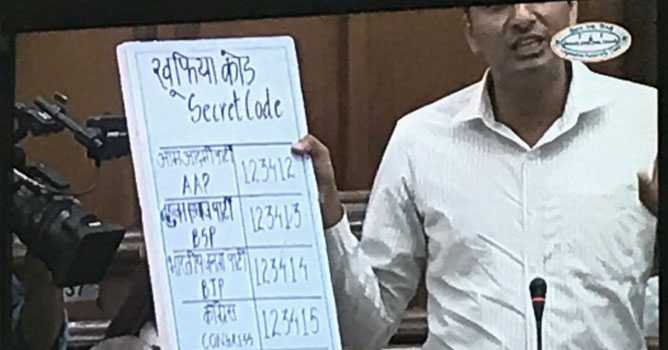 खुफिया कोड
Secret Code
आम आदमी पार्टी
AAP
123412
बहुजन समाज पार्टी
BSP
123413
भारतीय जनता पार्टी
BJP
123414
काँग्रेस
CONGRESS
123415